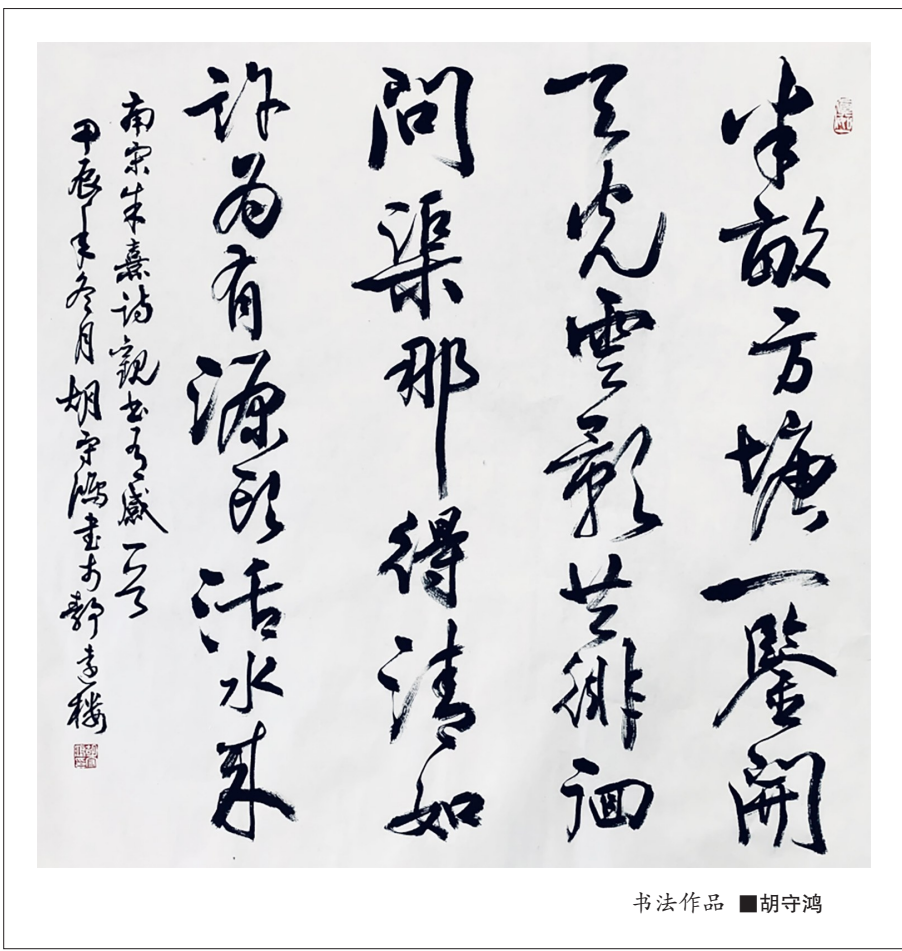 半畝方塘一鑒開
天光雲影共徘徊
問渠那得清如
許為有源頭活水來
南宋朱熹詩觀書有感一首
甲辰年冬月胡守鴻書於靜遠樓
书法作品 ■胡守鸿